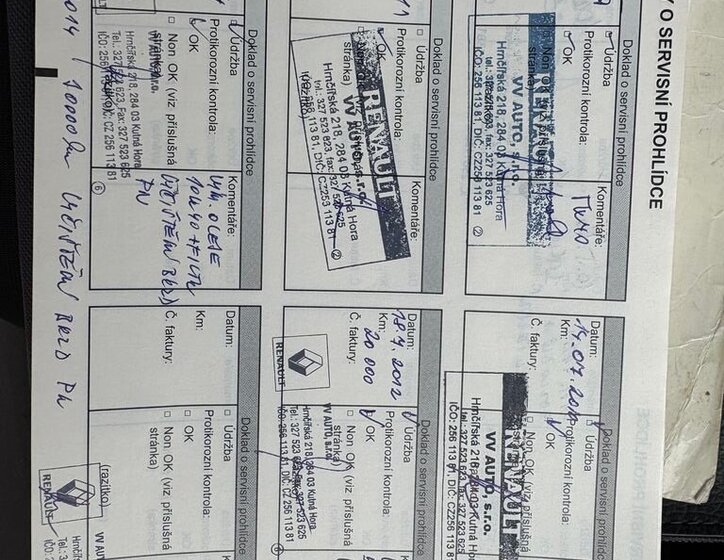 Y O SERVISNÍ PROHLÍDCE
Doklad o servisní prohlídce
Údržba
Protikorozní kontrola:
OK
Non OK (viz příslušná
stránka)
Komentáře:
VV AUTO, s.r.o.
Hrnčířská 218, 284 03 Kutná Hora
tel.: 327 523 623, fax: 327 523 625
IČO: 256 113 81, DIČ: CZ256 113 81
②
Doklad o servisní prohlídce
Datum:
Km:
Č. faktury:
Údržba
Protikorozní kontrola:
OK
Non OK (viz příslušná
RENAULT
VV AUTO, s.r.o.
Hrnčířská 218
tel.: 327 523 623, fax: 327 523 625
IČO: 256 113 81, DIČ: CZ256 113 81
Doklad o servisní prohlídce
Údržba
Protikorozní kontrola:
OK
stránka)
Komentáře:
RENAULT
VV AUTO, s.r.o.
Hrnčířská 218, 284 03 Kutná Hora
tel.: 327 523 623, fax: 327 523 625
②
Doklad o servisní prohlídce
Datum:
18.7.2012
Km:
20 000
Č. faktury:
Údržba
Protikorozní kontrola:
OK
Non OK (viz příslušná
stránka)
RENAULT
VV AUTO, s.r.o.
Hrnčířská 218, 284 03 Kutná Hora
Tel.: 327 523 623, Fax: 327 523 625
IČO: 256 113 81, DIČ: CZ 256 113 81
⑥
Doklad o servisní prohlídce
Údržba
Protikorozní kontrola:
OK
Non OK (viz příslušná
stránka)
(razítko)
Komentáře:
VÝM. OLEJE
10W40 + FILTR
VYČIŠTĚNÍ BRZD
PN
VV AUTO, s.r.o.
Hrnčířská 218, 284 03 Kutná Hora
Tel.: 327 523 623, Fax: 327 523 625
IČO: 256 113 81, DIČ: CZ 256 113 81
⑥
Doklad o servisní prohlídce
Datum:
Km:
Č. faktury:
Údržba
Protikorozní kontrola:
OK
Non OK (viz příslušná
stránka)
(razítko)
2014 / 10000 km VYČIŠTĚNÍ BRZD PN
RENAULT
VV AUTO
Hrnčířs
Tel.: 3
IČO: